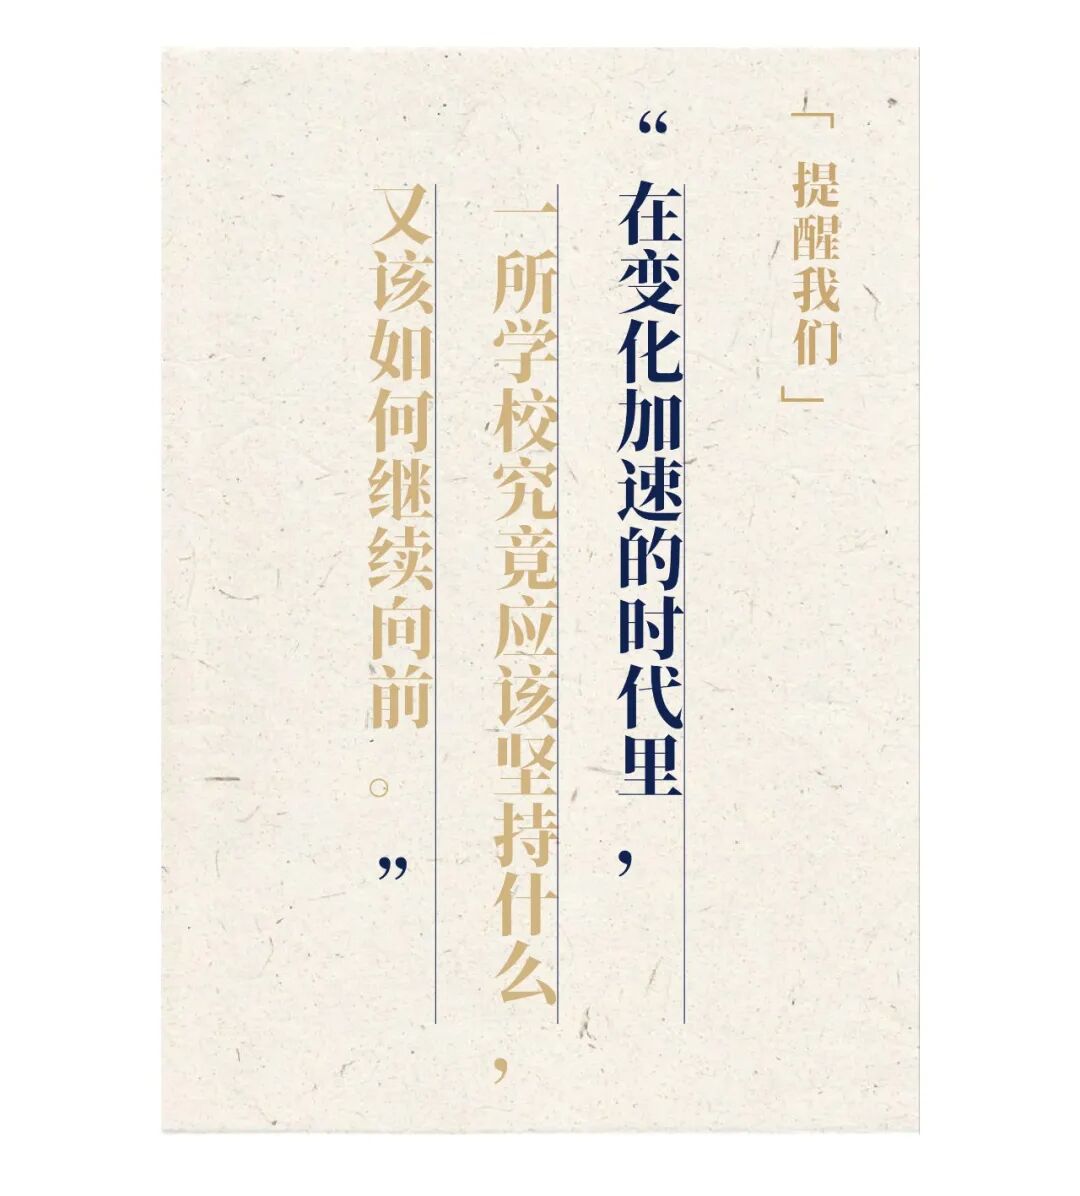 「提醒我们」
“在变化加速的时代里，
一所学校究竟应该坚持什么，
又该如何继续向前。”